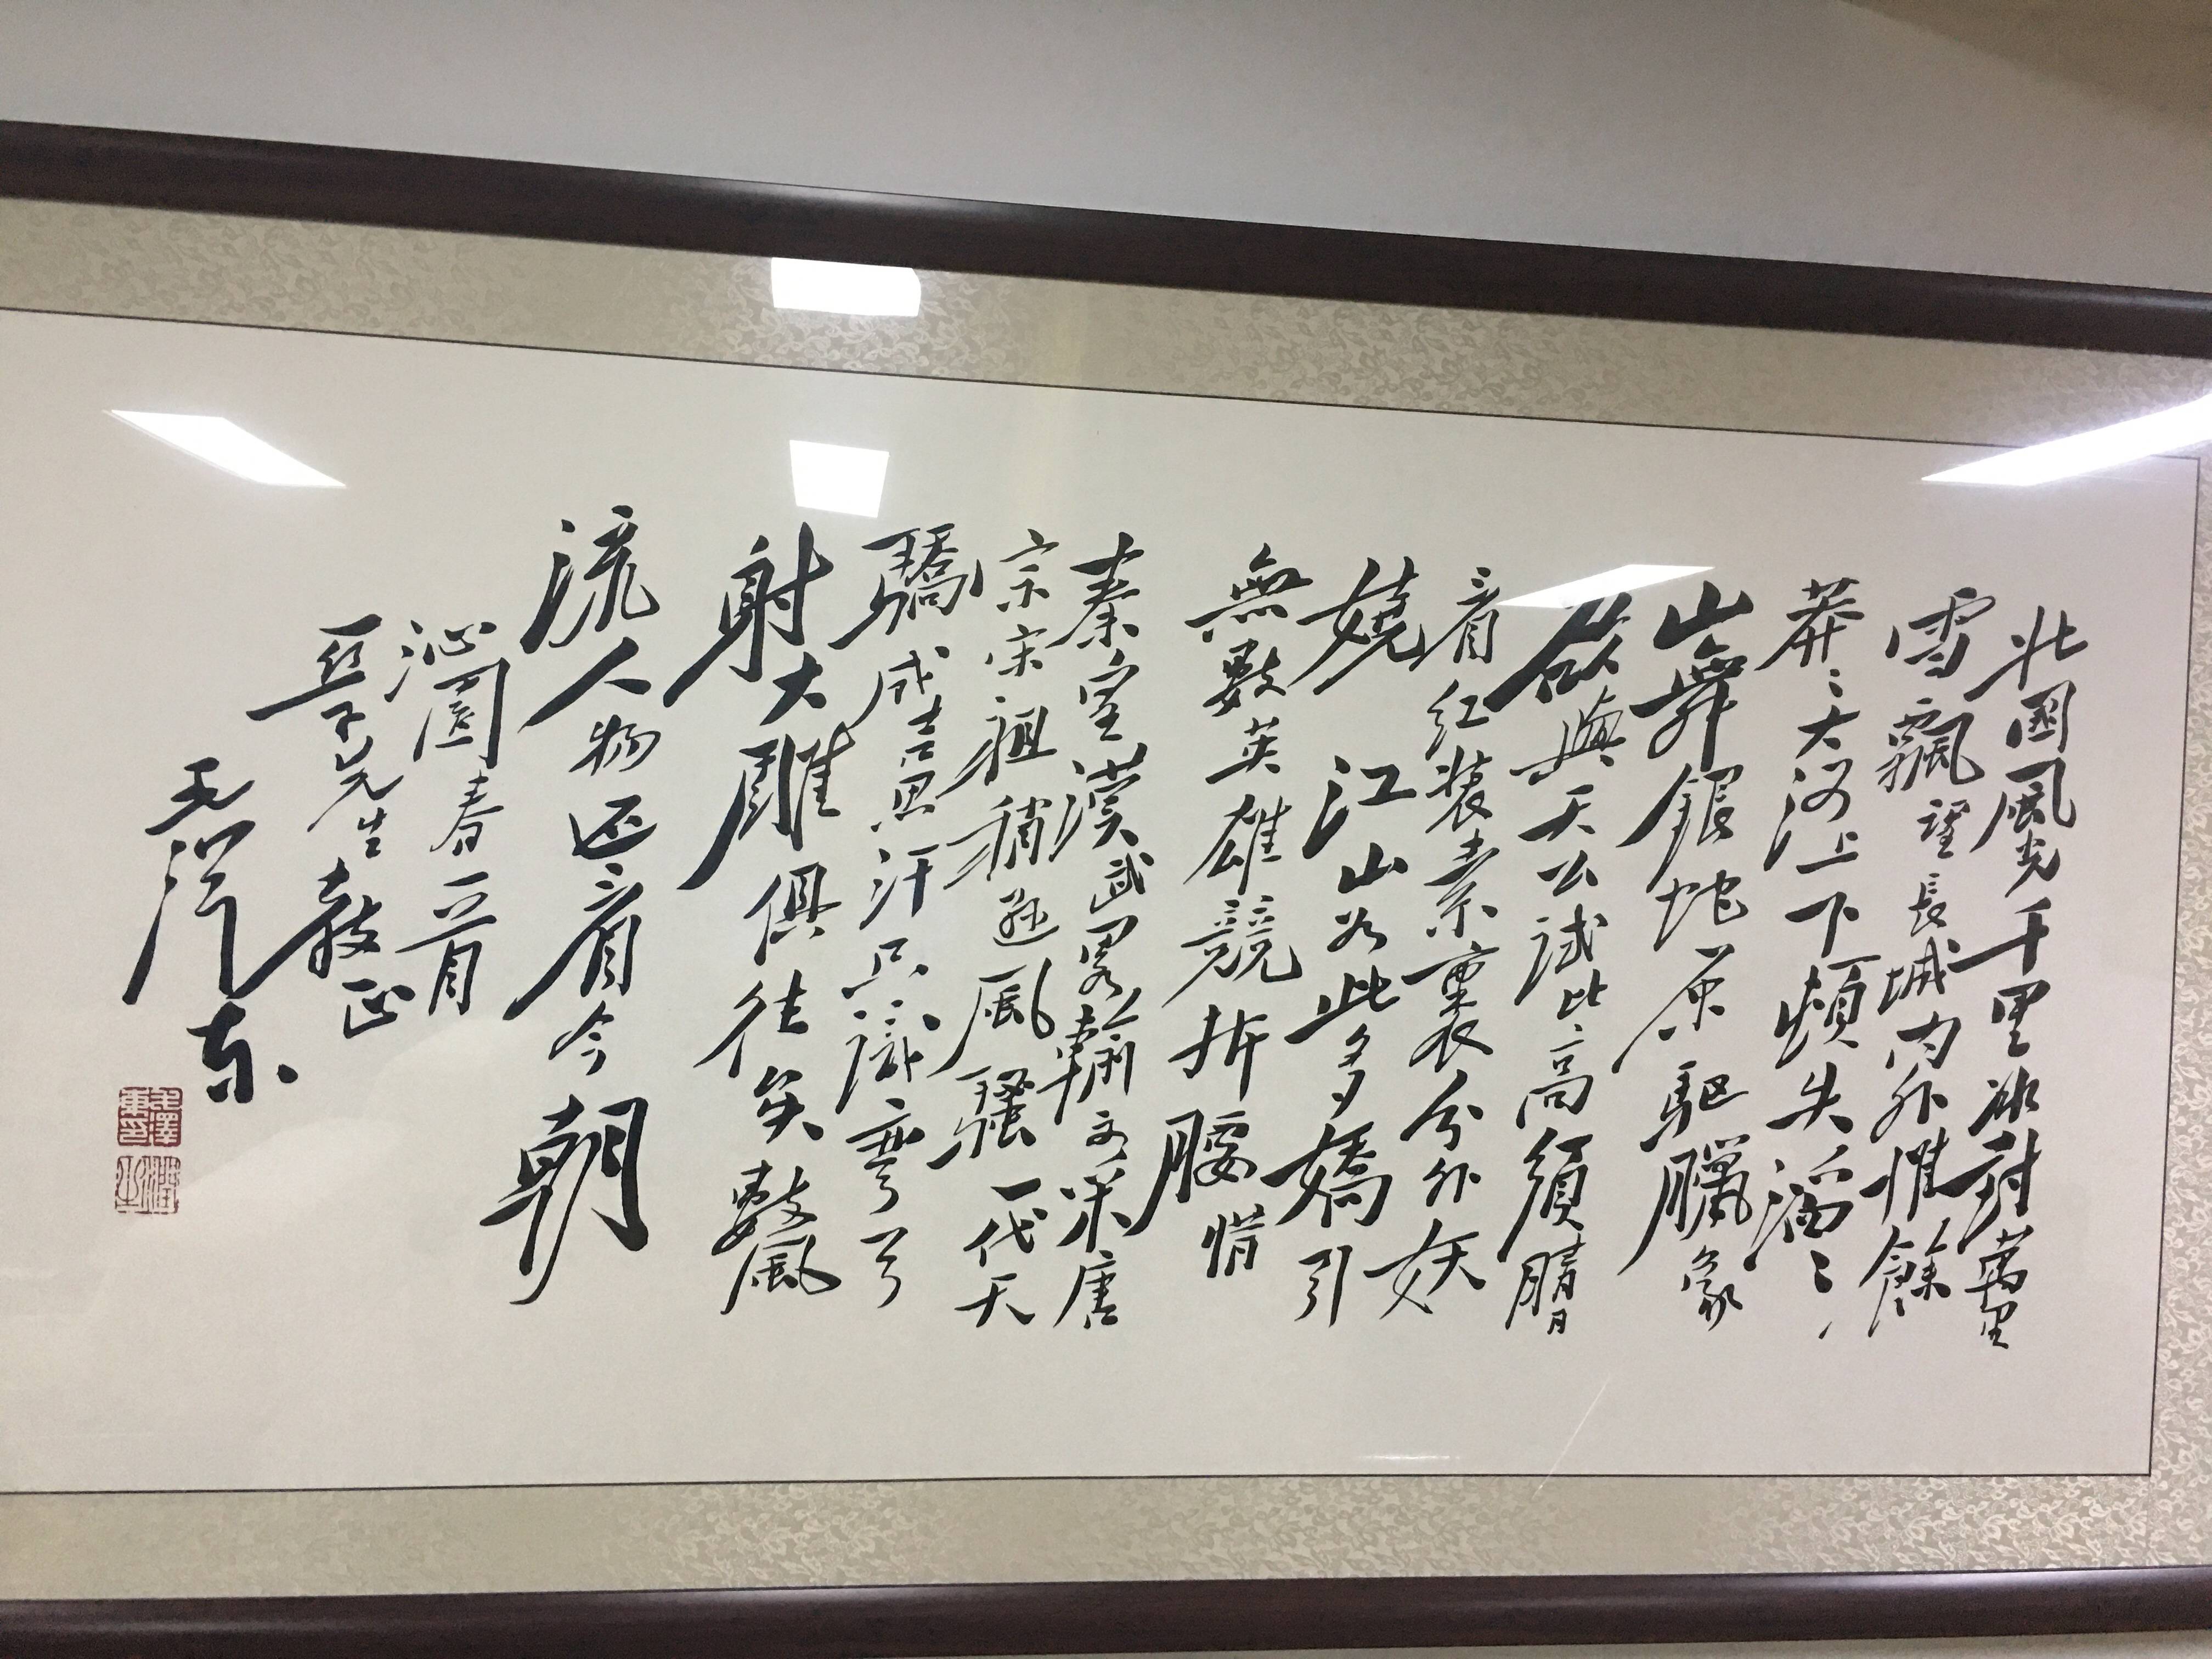 北國風光千里冰封萬里
雪飄望長城內外惟餘
莽〻大河上下頓失滔〻
山舞銀蛇原驅臘象
欲與天公試比高須晴日
看紅裝素裹分外妖
嬈 江山如此多嬌引
無數英雄競折腰惜
秦皇漢武略輸文采唐
宗宋祖稍遜風騷一代天
驕成吉思汗只識彎弓
射大雕俱往矣數風
流人物還看今朝
沁園春一首
亞子先生教正
毛澤東
毛澤東印
潤之